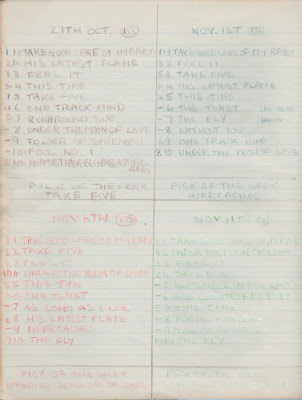 27TH OCT.
1 1 TAKE GOOD CARE OF MY BABY
2 1 HIS LATEST FLAME
3 3 FEEL IT
5 4 THIS TIME
7 5 TAKE FIVE
4 6 ONE TRACK MIND
5 7 RUNAROUND SUE
- 8 UNDER THE MOON OF LOVE
- 9 TOWER OF STRENGTH
- 10 FOOL NO. 1
BABY
PICK OF THE WEEK
TAKE FIVE
NOV. 1ST
1 1 TAKE GOOD CARE OF MY BABY
3 2 FEEL IT
5 3 TAKE FIVE
2 4 HIS LATEST FLAME
4 5 THIS TIME
- 6 THE TWIST
- 7 THE FLY
- 8 WITHOUT YOU
6 9 ONE TRACK MIND
8 10 UNDER THE MOON OF LOVE
PICK OF THE WEEK
HEARTACHES
NOV 6TH
1 1 TAKE GOOD CARE OF MY BABY
3 2 TAKE FIVE
2 3 FEEL IT
10 4 UNDER THE MOON OF LOVE
5 5 THIS TIME
6 6 THE TWIST
- 7 AS LONG AS I LIVE
4 8 HIS LATEST FLAME
- 9 HEARTACHES
7 10 THE FLY
PICK OF THE WEEK
UNDER THE MOON OF LOVE
NOV 11TH
1 1 TAKE GOOD CARE OF MY BABY
4 2 UNDER THE MOON OF LOVE
3 3 FEEL IT
2 4 TAKE FIVE
- 5 SEPTEMBER IN THE RAIN
5 7 THIS TIME
10 10 THE FLY
PICK OF THE WEEK